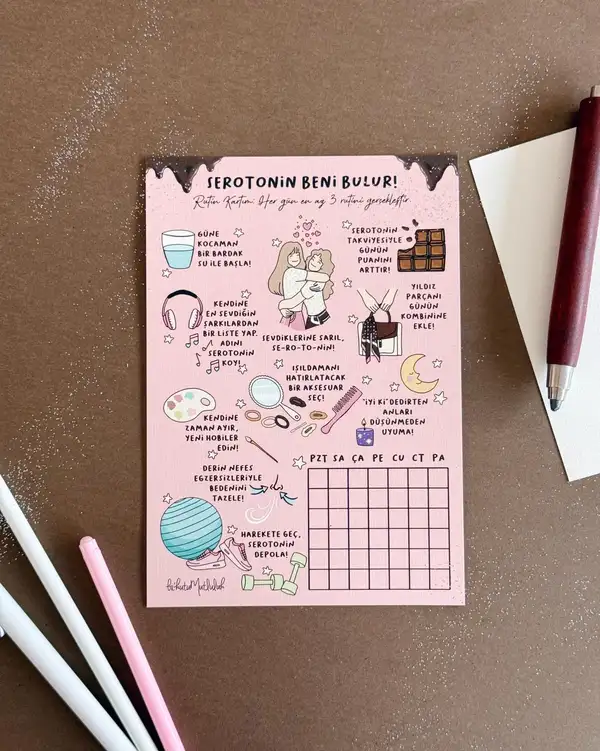 SEROTONİN BENİ BULUR!
Rutin Kartım: Her gün en az 3 rutini gerçekleştir
GÜNE
KOCAMAN
BİR BARDAK
SU İLE BAŞLA!
SEROTONİN
TAKVİYESİYLE
GÜNÜN
PUANINI
ARTTIR!
KENDİNE
EN SEVDİĞİN
ŞARKILARDAN
BİR LİSTE YAP.
ADINI
SEROTONİN
KOY!
SEVDİKLERİNE SARIL,
SE-RO-TO-NİN!
YILDIZ
PARÇANI
GÜNÜN
KOMBİNİNE
EKLE!
IŞILDAMANI
HATIRLATACAK
BİR AKSESUAR
SEÇ!
KENDİNE
ZAMAN AYIR,
YENİ HOBİLER
EDİN!
"İYİ Kİ" DEDİRTEN
ANLARI
DÜŞÜNMEDEN
UYUMA!
DERİN NEFES
EGZERSİZLERİYLE
BEDENİNİ
TAZELE!
HAREKETE GEÇ,
SEROTONİN
DEPOLA!
PZT SA ÇA PE CU CT PA
birkutuMutluluk